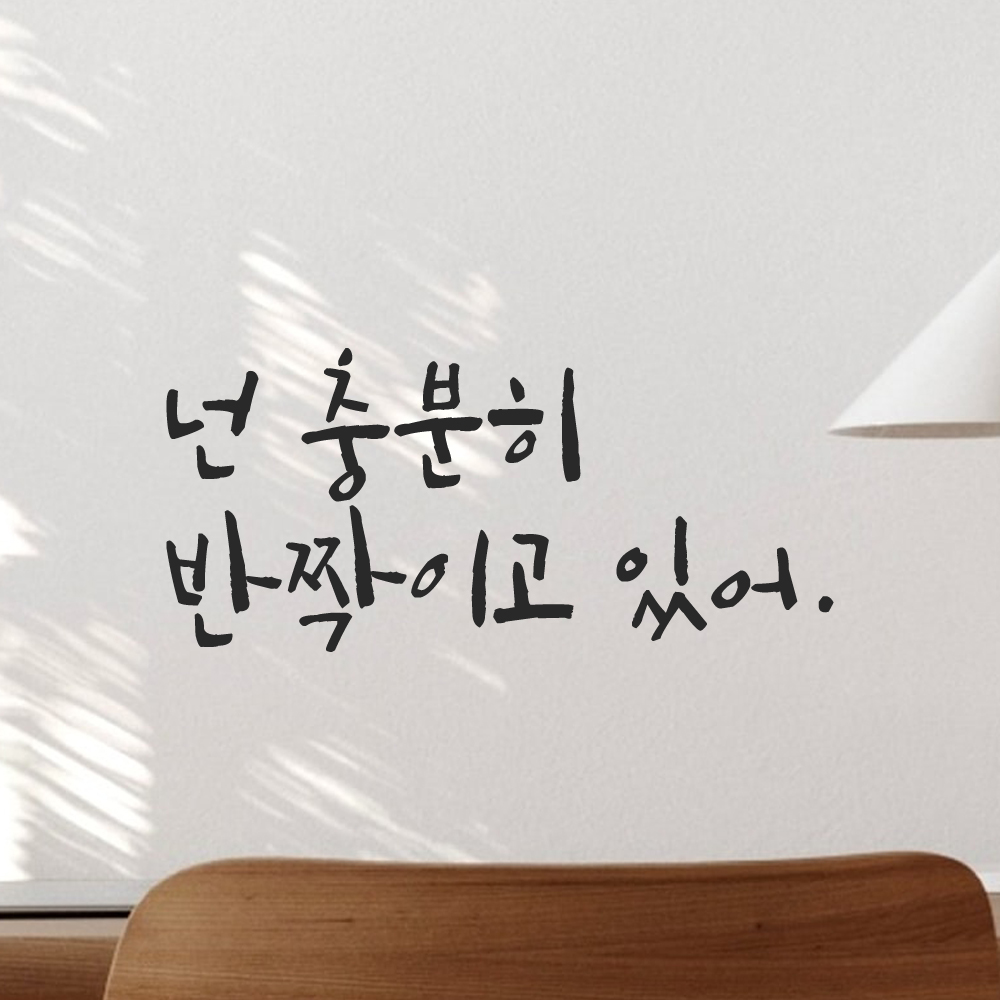 넌 충분히
반짝이고 있어.